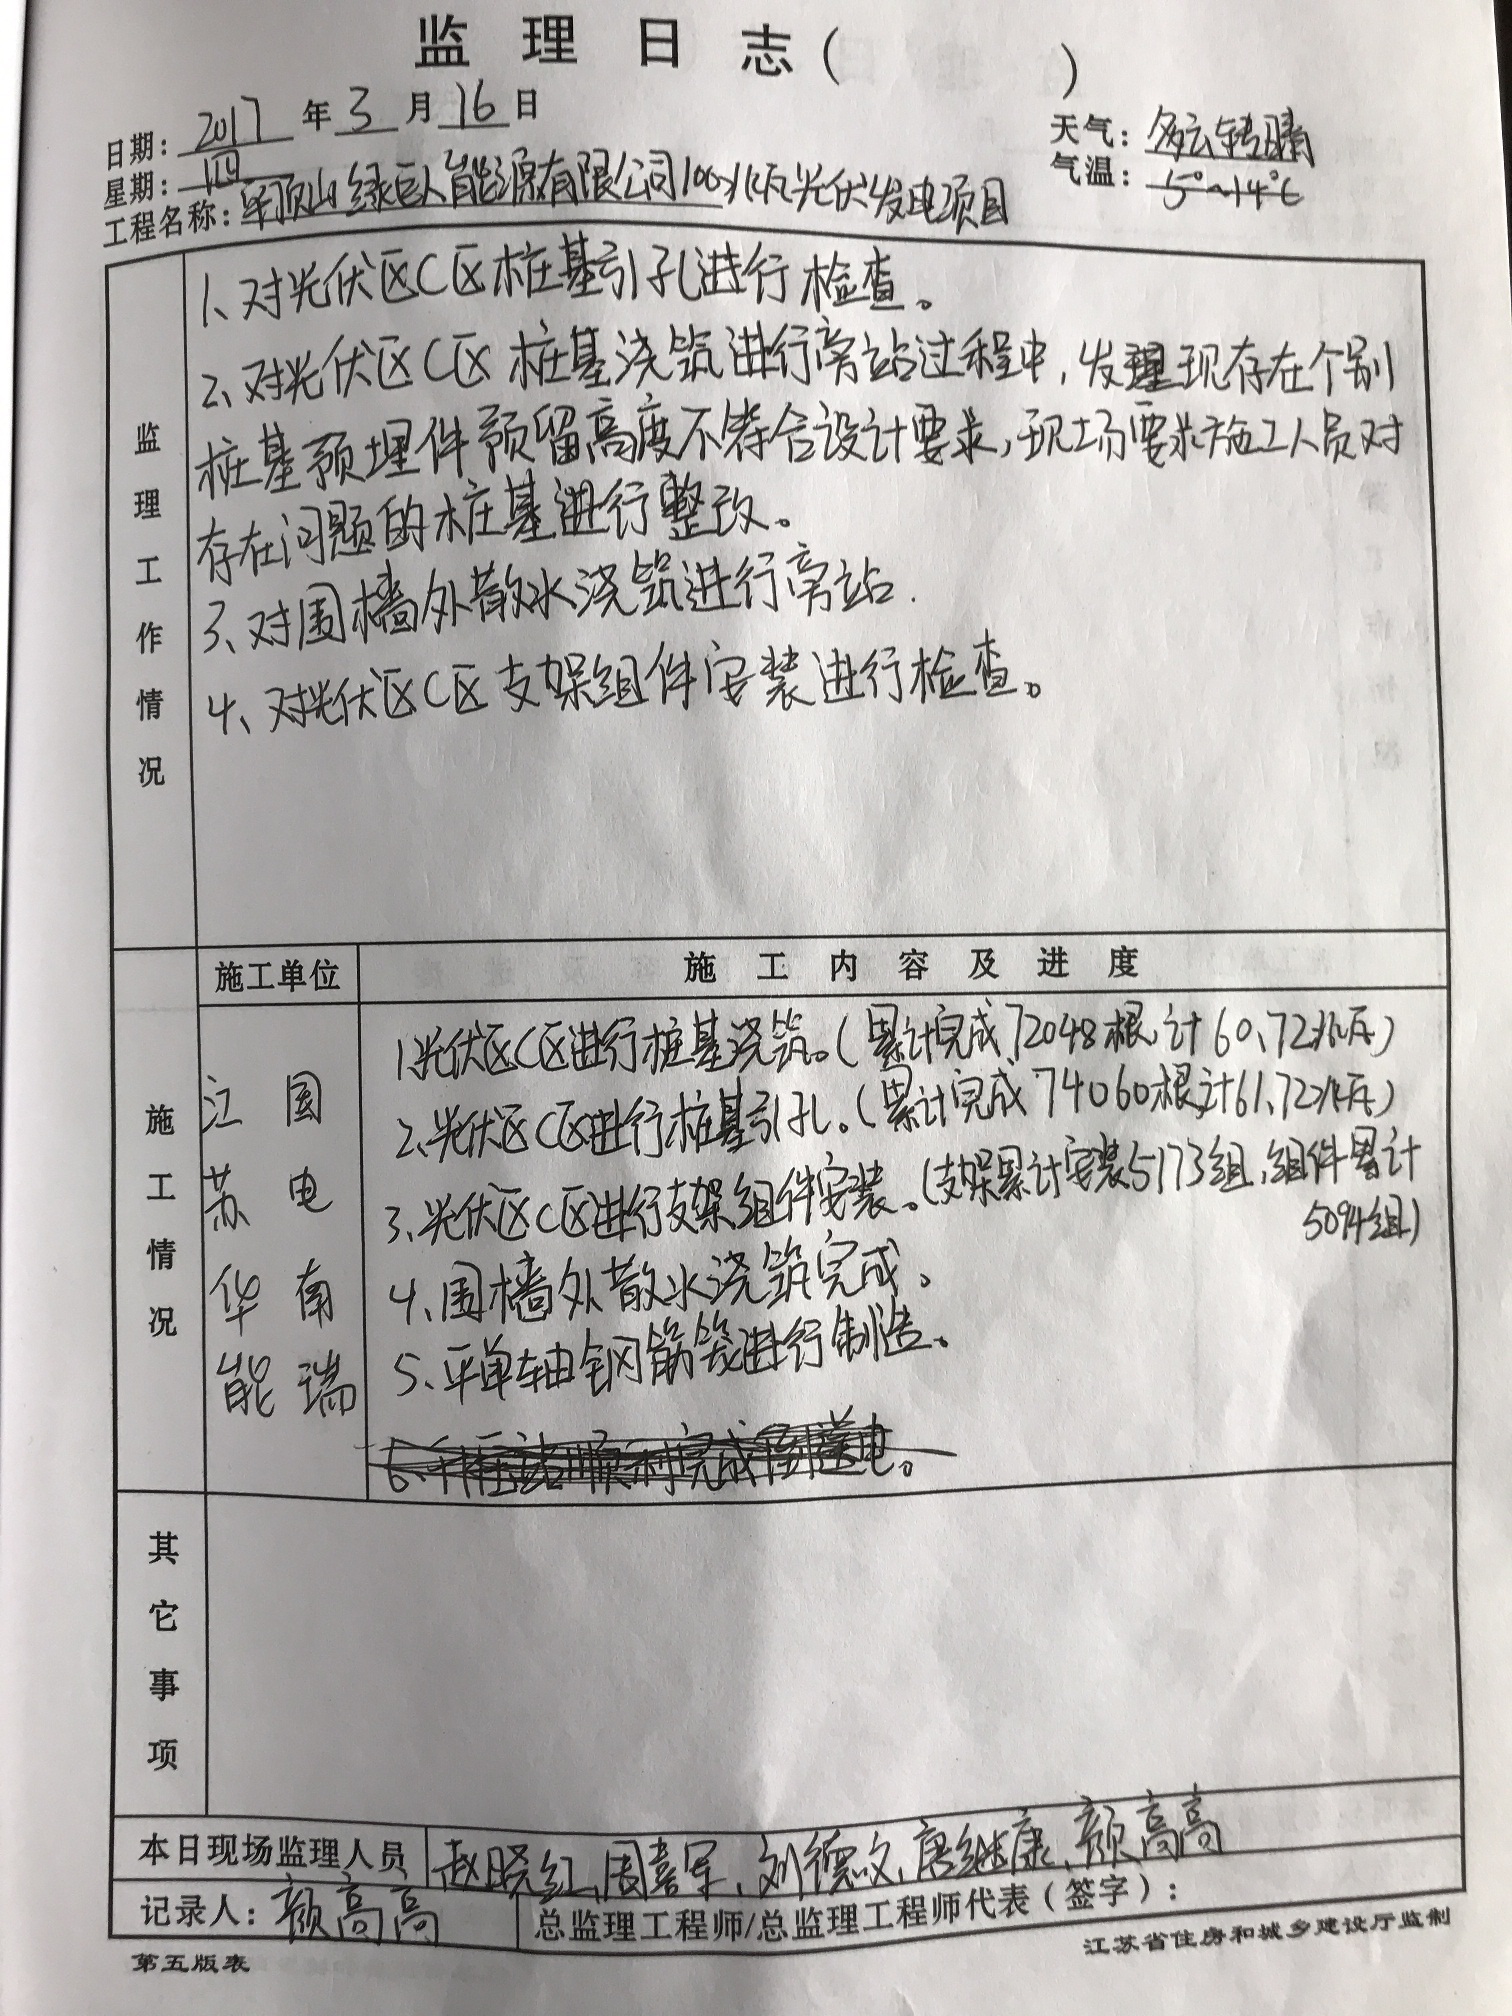 监理日志( )
日期: 2017 年 3 月 16 日
天气: 多云转晴
星期: 四
气温: 5°~14℃
工程名称: 单顶山绿巨人能源有限公司100兆瓦光伏发电项目
监理工作情况
1、对光伏区C区桩基引孔进行检查。
2、对光伏区C区桩基浇筑进行旁站过程中,发现存在个别
桩基预埋件预留高度不符合设计要求,现场要求施工人员对
存在问题的桩基进行整改。
3、对围墙外散水浇筑进行旁站.
4、对光伏区C区支架组件安装进行检查。
施工单位
施工内容及进度
施工情况
江苏华能
国电南瑞
1.光伏区C区进行桩基浇筑。(累计完成72048根,计60.72兆瓦)
2、光伏区C区进行桩基引孔。(累计完成74060根,计61.72兆瓦)
3、光伏区C区进行支架组件安装。(支架累计安装5173组,组件累计
5094组)
4、围墙外散水浇筑完成。
5、平单轴钢筋笼进行制造。
6、升压站顺利完成倒送电。
其它事项
本日现场监理人员 赵晓红、周喜军、刘德文、唐继康、颜高高
记录人: 颜高高
总监理工程师/总监理工程师代表(签字):
第五版表
江苏省住房和城乡建设厅监制